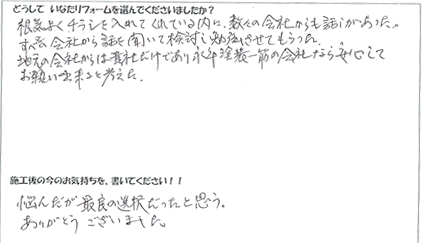 どうして いなだリフォームを選んでくださいましたか？
根気よくチラシを入れてくれている内に、数々の会社からも話しがあった。
すべての会社から話を聞いて検討し勉強させてもらった。
地元の会社からは貴社だけであり永年塗装一筋の会社なら安心して
お願い出来ると考えた。
施工後の今のお気持ちを、書いてください！！
悩んだが最良の選択だったと思う。
ありがとうございました。